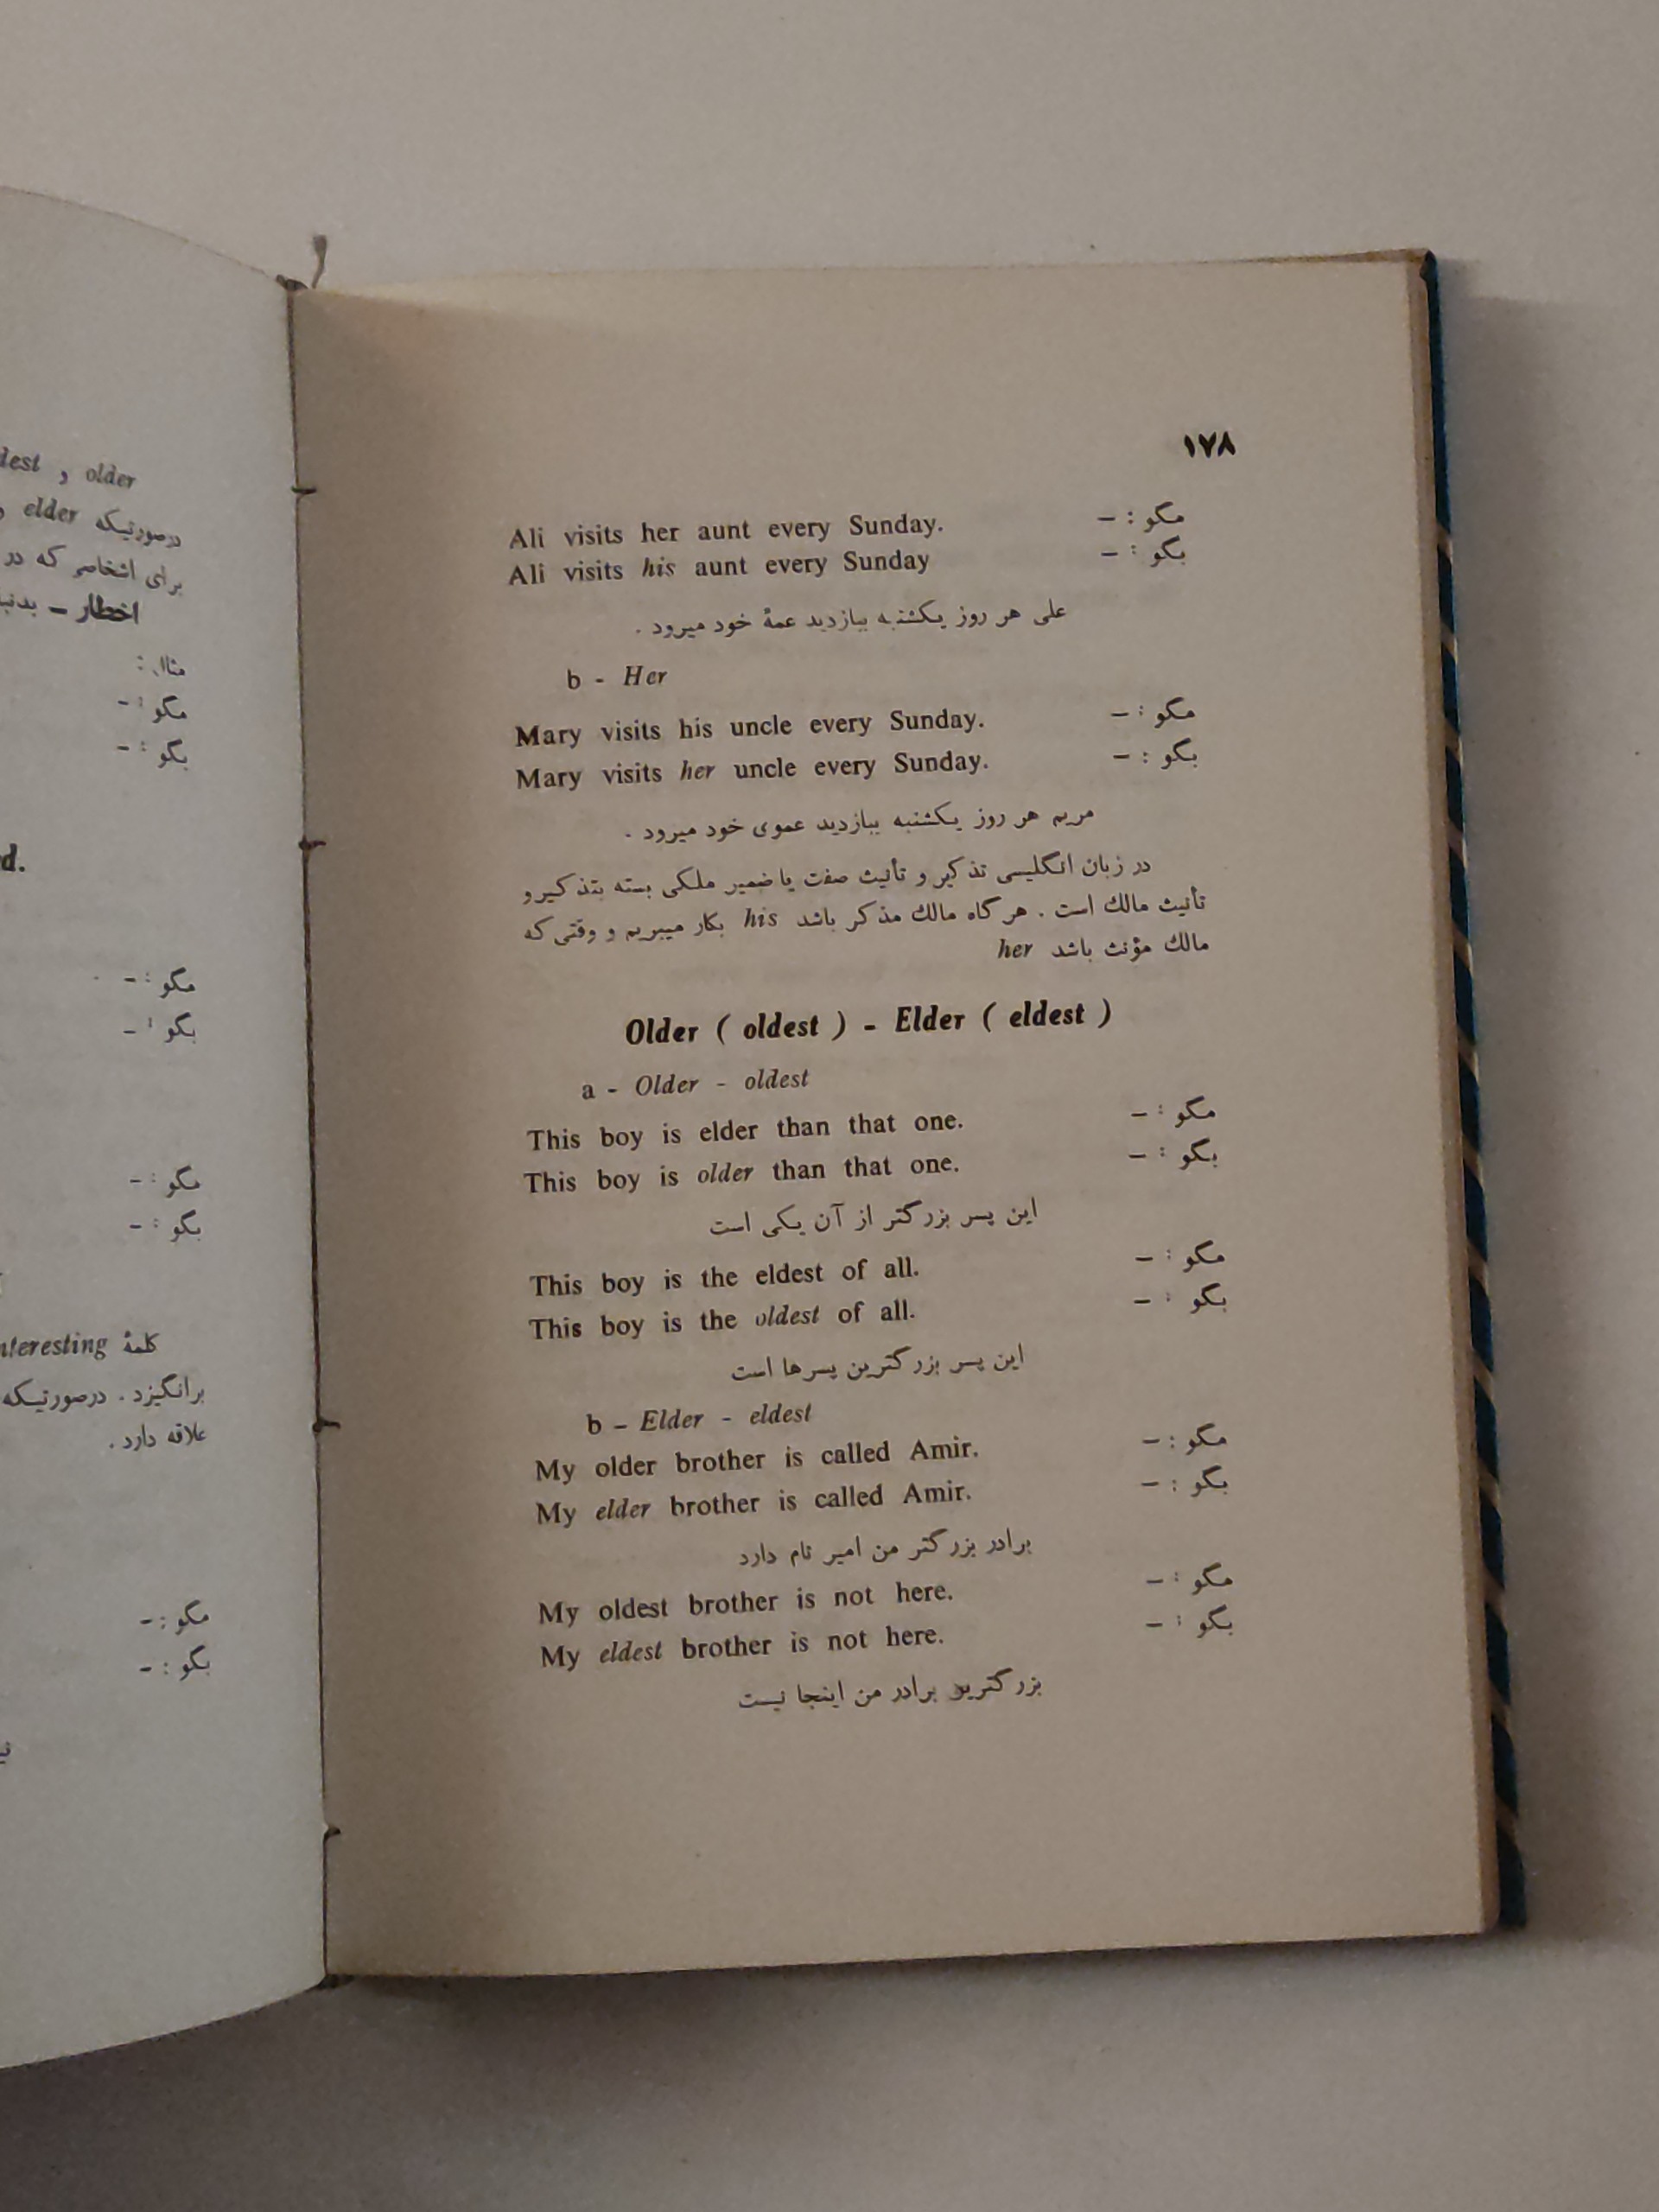 ۱۷۸
مگو : – Ali visits her aunt every Sunday.
بگو : – Ali visits his aunt every Sunday
علی هر روز یکشنبه ببازدید عمهٔ خود میرود .
b - Her
مگو : – Mary visits his uncle every Sunday.
بگو : – Mary visits her uncle every Sunday.
مریم هر روز یکشنبه ببازدید عموی خود میرود .
در زبان انگلیسی تذکیر و تأنیث صفت یا ضمیر ملکی بسته بتذکیر و
تأنیث مالك است . هر گاه مالك مذکر باشد his بکار میبریم و وقتی که
مالك مؤنث باشد her
Older ( oldest ) - Elder ( eldest )
a - Older - oldest
مگو : – This boy is elder than that one.
بگو : – This boy is older than that one.
این پسر بزرگتر از آن یکی است
مگو : – This boy is the eldest of all.
بگو : – This boy is the oldest of all.
این پسر بزرگترین پسرها است
b – Elder - eldest
مگو : – My older brother is called Amir.
بگو : – My elder brother is called Amir.
برادر بزرگتر من امیر نام دارد
مگو : – My oldest brother is not here.
بگو : – My eldest brother is not here.
بزرگترین برادر من اینجا نیست
older و
درصورتیکه elder
برای اشخاص که در
اخطار –
مثال :
مگو : –
بگو : –
مگو : –
بگو : –
مگو : –
بگو : –
کلمهٔ
برانگیزد . درصورتیکه
علاقه دارد .
مگو : –
بگو : –